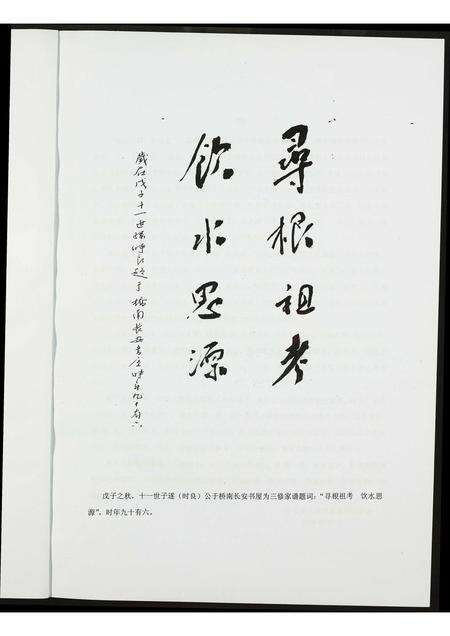 尋根祖考
飲水思源
歲在戊子十一世孫時良題于橋南長安書屋時年九十有六
戊子之秋，十一世子遂（时良）公于桥南长安书屋为三修家谱题词：“寻根祖考　饮水思
源”，时年九十有六。